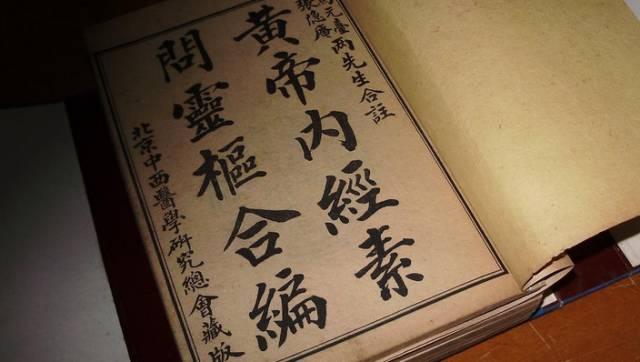 元臺
張隐庵
两先生合註
黃帝内經素
問靈樞合編
北京中西醫學研究總會藏版